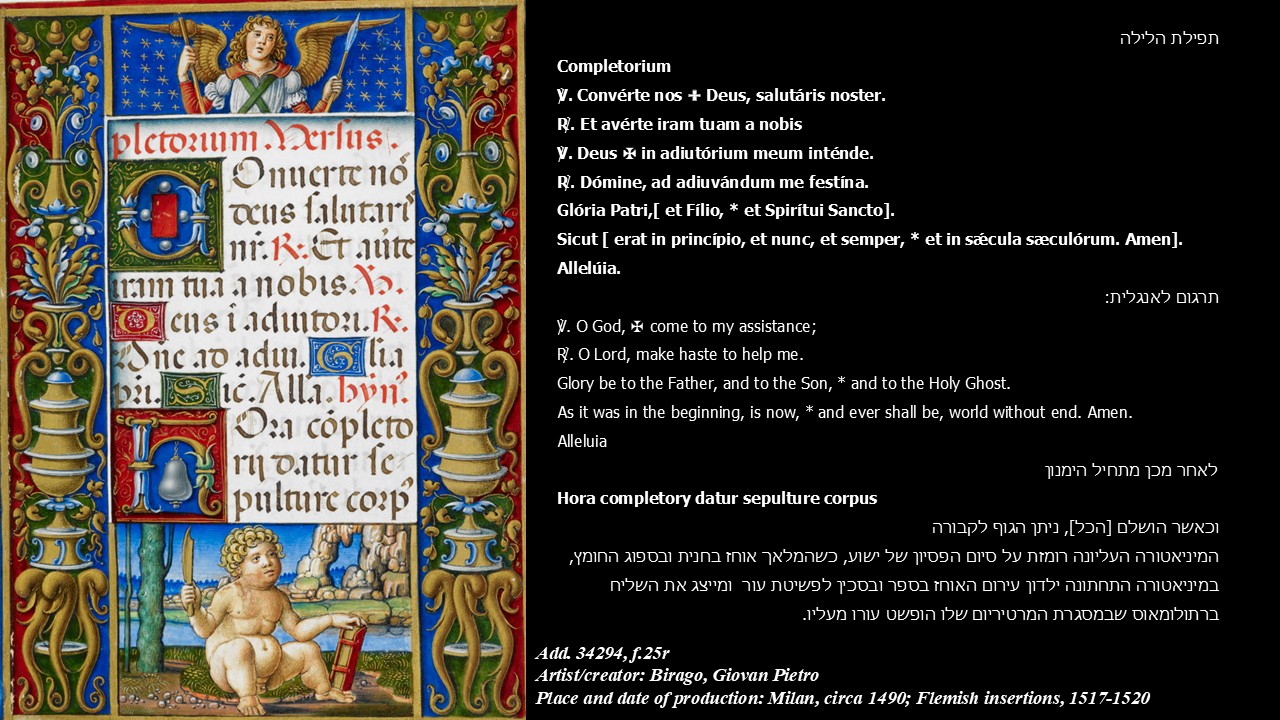 pletorium. Versus.
Onuerte nō
deus salutaris
nr̄. R: Et auerte
iram tuā a nobis. V.
Deus ī adiutoriū. R:
Dn̄e ad adiu. Glīa
pr̄i. Sic̄. Alla. hyn̄.
Ora cōpleto
rij datur se
pulture corp9
תפילת הלילה
Completorium
℣. Convérte nos ✚ Deus, salutáris noster.
℟. Et avérte iram tuam a nobis
℣. Deus ✠ in adiutórium meum inténde.
℟. Dómine, ad adiuvándum me festína.
Glória Patri,[ et Fílio, * et Spirítui Sancto].
Sicut [ erat in princípio, et nunc, et semper, * et in sǽcula sæculórum. Amen].
Allelúia.
תרגום לאנגלית:
℣. O God, ✠ come to my assistance;
℟. O Lord, make haste to help me.
Glory be to the Father, and to the Son, * and to the Holy Ghost.
As it was in the beginning, is now, * and ever shall be, world without end. Amen.
Alleluia
לאחר מכן מתחיל הימנון
Hora completory datur sepulture corpus
וכאשר הושלם [הכל], ניתן הגוף לקבורה
המיניאטורה העליונה רומזת על סיום הפסיון של ישוע, כשהמלאך אוחז בחנית ובספוג החומץ,
במיניאטורה התחתונה ילדון עירום האוחז בספר ובסכין לפשיטת עור ומייצג את השליח
ברתולומאוס שבמסגרת המרטיריום שלו הופשט עורו מעליו.
Add. 34294, f.25r
Artist/creator: Birago, Giovan Pietro
Place and date of production: Milan, circa 1490; Flemish insertions, 1517-1520